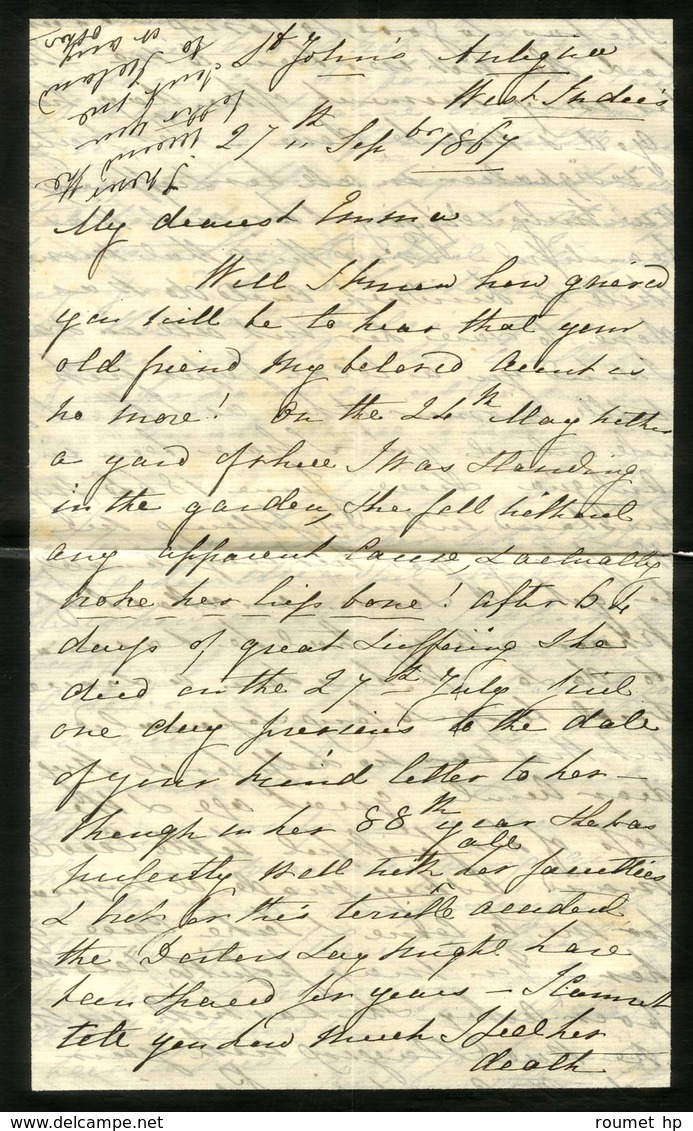 St John's Antigua
West Indies
27th Sepbr 1867
I never
letter you
sent me
to Ireland
or any
other
My dearest Emma
Well I know how grieved
you will be to hear that your
old friend my beloved Aunt is
no more! On the 24th May within
a yard of where I was standing
in the garden, she fell without
any apparent cause, & actually
broke her hip bone! after 64
days of great suffering she
died on the 27th July just
one day previous to the date
of your kind letter to her –
though in her 88th year she was
perfectly well with all her faculties
& but for this terrible accident
the Doctors say might have
been spared for years – I cannot
tell you how much I feel her
death
roumet hp